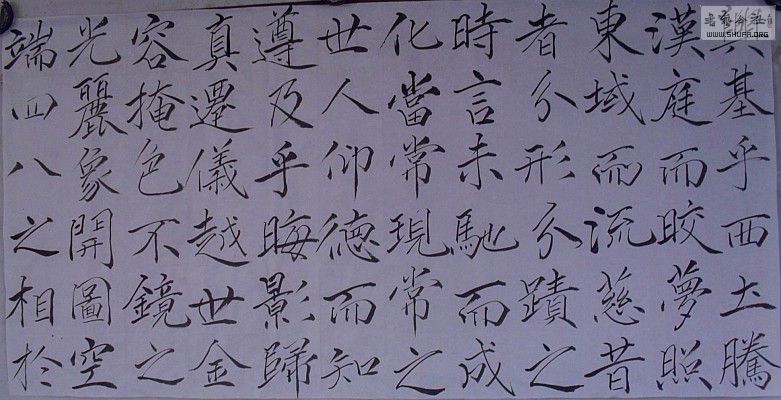 基乎西土騰
漢庭而皎夢照
東域而流慈昔
者分形分蹟之
時言未馳而成
化當常現常之
世人仰德而知
遵及乎晦影歸
真遷儀越世金
容掩色不鏡之
光麗象開圖空
端四八之相於
WWW.SHUFA.ORG